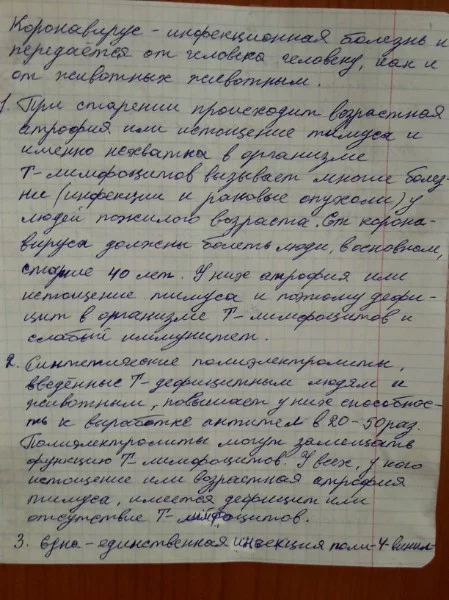 Коронавирус - инфекционная болезнь и
передаётся от человека человеку, как и
от животных животным.
1. При старении происходит возрастная
атрофия или истощение тимуса и
именно нехватка в организме
Т-лимфоцитов вызывает многие болез-
ние (инфекции и раковые опухоли) у
людей пожилого возраста. От корона-
вируса должны болеть люди, в основном,
старше 40 лет. У них атрофия или
истощение тимуса и поэтому дефи-
цит в организме Т-лимфоцитов и
слабый иммунитет.
2. Синтетические полиэлектролиты,
введённые Т-дефицитным людям и
животным, повышает у них способнос-
ть к выработке антител в 20-50 раз.
Полиэлектролиты могут замещать
функцию Т-лимфоцитов. У всех, у кого
истощение или возрастная атрофия
тимуса, имеется дефицит или
отсутствие Т-лимфоцитов.
3. Одна-единственная инъекция поли-4-винил-